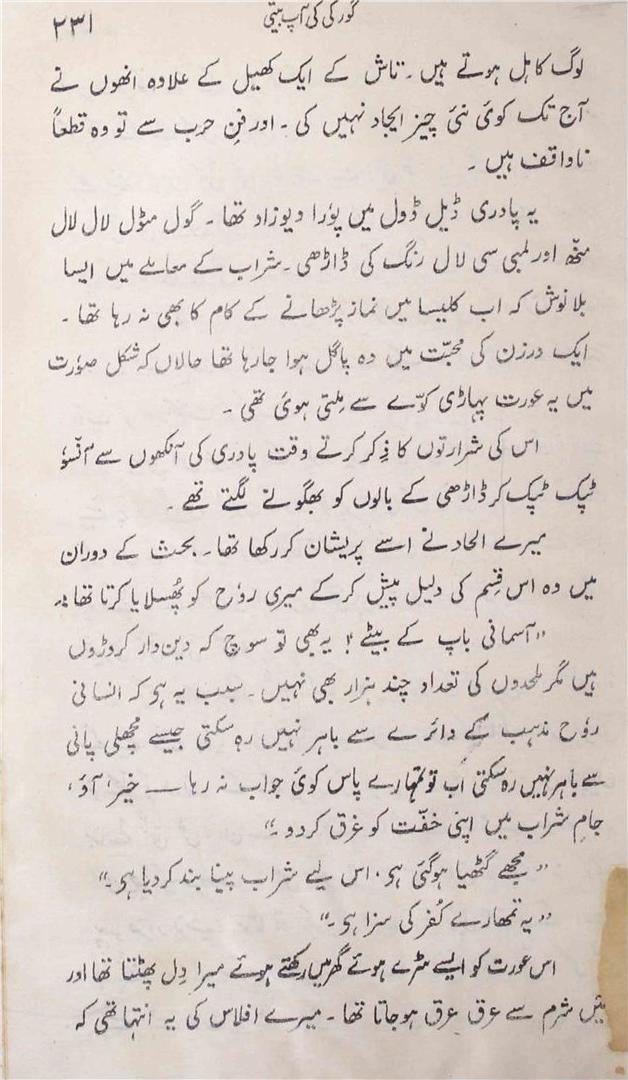 گورکی کی آپ بیتی
۲۳۱
لوگ کاہل ہوتے ہیں۔ تاش کے ایک کھیل کے علاوہ انھوں نے
آج تک کوئی نئی چیز ایجاد نہیں کی۔ اور فنِ حرب سے تو وہ قطعاً
ناواقف ہیں۔
یہ پادری ڈیل ڈول میں پورا دیوزاد تھا۔ گول مٹول لال لال
منھ اور لمبی سی لال رنگ کی ڈاڑھی۔ شراب کے معاملے میں ایسا
بلانوش کہ اب کلیسا میں نماز پڑھانے کے کام کا بھی نہ رہا تھا۔
ایک درزن کی محبّت میں وہ پاگل ہوا جارہا تھا حالاں کہ شکل صوٗرت
میں یہ عورت پہاڑی کوّے سے مِلتی ہوئی تھی۔
اس کی شرارتوں کا ذِکر کرتے وقت پادری کی آنکھوں سے آنسوٗ
ٹپک ٹپک کر ڈاڑھی کے بالوں کو بھگونے لگتے تھے۔
میرے الحاد نے اسے پریشان کر رکھا تھا۔ بحث کے دوران
میں وہ اس قِسم کی دلیل پیش کرکے میری روٗح کو پُھسلایا کرتا تھا:۔
”آسمانی باپ کے بیٹے! یہ بھی توٗ سوچ کہ دین دار کروڑوں
ہیں مگر ملحدوں کی تعداد چند ہزار بھی نہیں۔ سبب یہ ہو کہ انسانی
روٗح مذہب کے دائرے سے باہر نہیں رہ سکتی جیسے مچھلی پانی
سے باہر نہیں رہ سکتی اب تو تمہارے پاس کوئی جواب نہ رہا —— خیر، آؤ،
جامِ شراب میں اپنی خفّت کو غرق کردو۔“
”مجھے گٹھیا ہوگئی ہو، اس لیے شراب پینا بند کردیا ہو۔“
”یہ تمھارے کُفر کی سزا ہو۔“
اس عورت کو ایسے سڑے ہوئے گھر میں رکھتے ہوئے میرا دِل پھٹتا تھا اور
مَیں شرم سے عرق عرق ہوجاتا تھا۔ میرے افلاس کی یہ انتہا تھی کہ